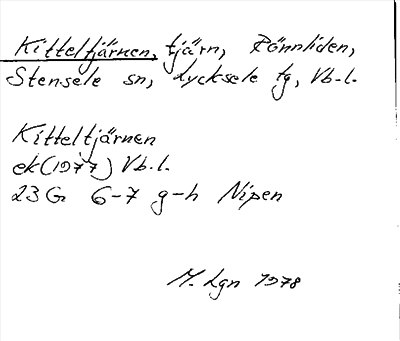 Kitteltjärnen, tjärn, Rönnliden,
Stensele sn, Lycksele tg, Vb-l.
Kitteltjärnen
ek (1977) Vb.l.
23 G 6-7 g-h Nipen
M. Lgn 1978